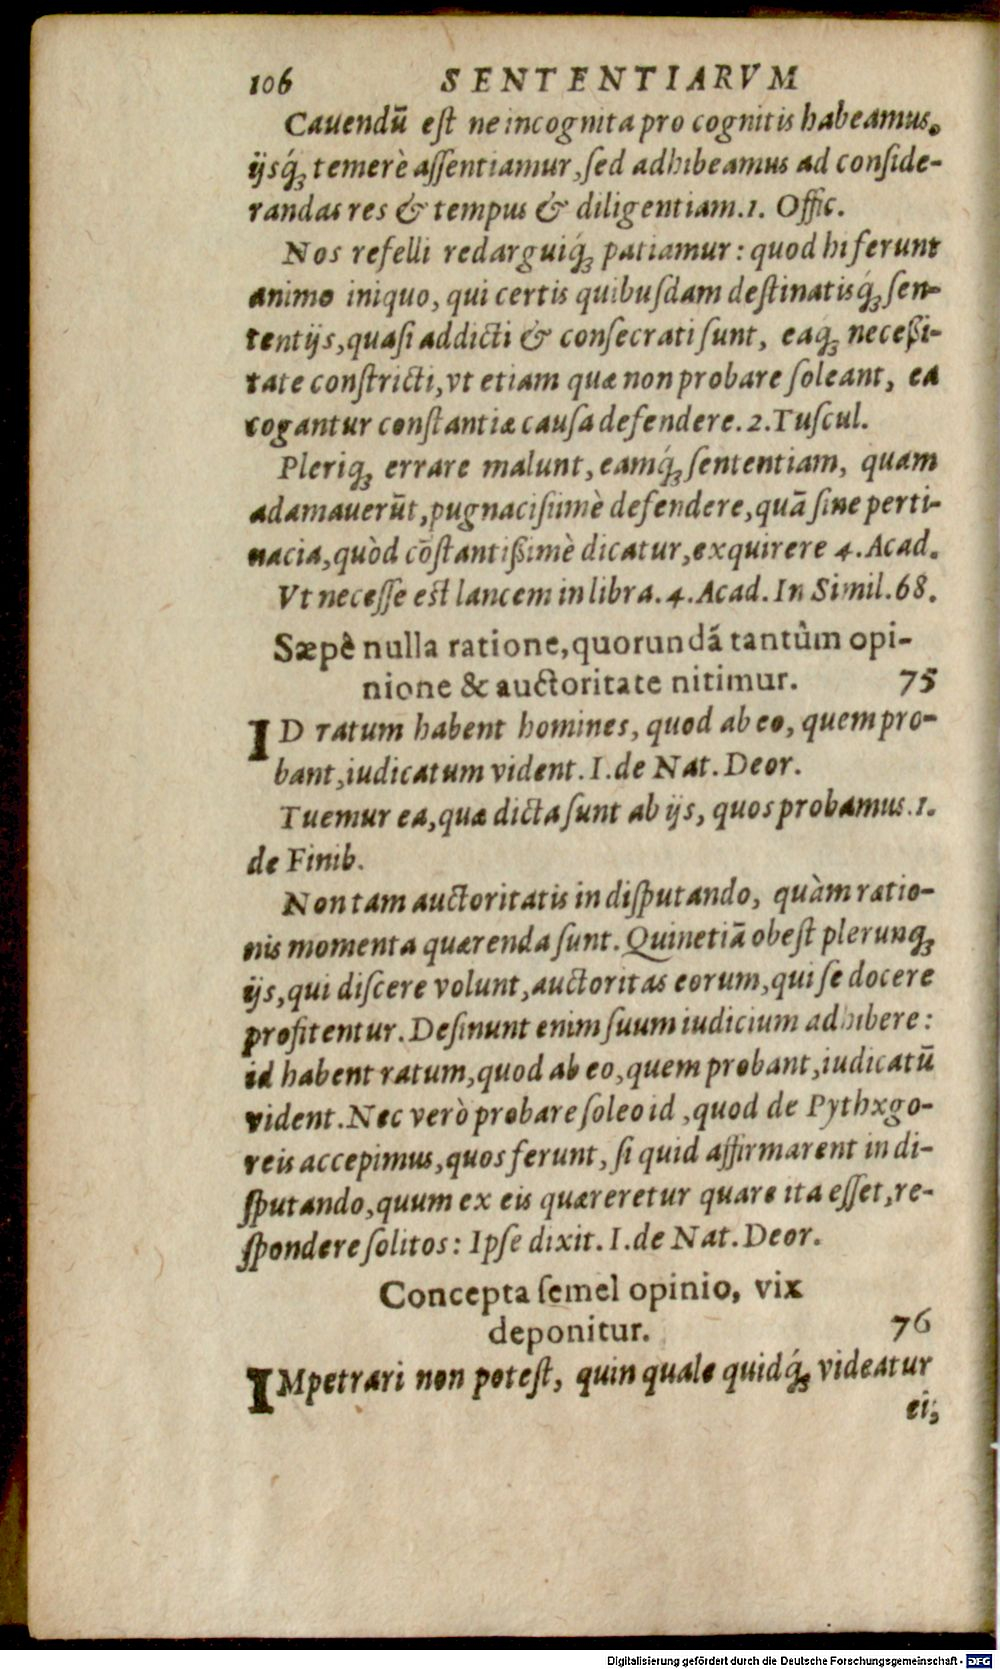 106 SENTENTIARVM
Cauendũ eſt ne incognita pro cognitis habeamus,
ijsq́; temerè aſſentiamur, ſed adhibeamus ad conſide-
randas res & tempus & diligentiam. 1. Offic.
Nos refelli redarguiq́; patiamur: quod hi ferunt
animo iniquo, qui certis quibuſdam deſtinatisq́; ſen-
tentijs, quaſi addicti & conſecrati ſunt, eaq́; neceßi-
tate conſtricti, vt etiam quæ non probare ſoleant, ea
cogantur conſtantiæ cauſa defendere. 2. Tuſcul.
Pleriq; errare malunt, eamq́; ſententiam, quam
adamauerũt, pugnacißimè defendere, quã ſine perti-
nacia, quòd cõſtantißimè dicatur, exquirere 4. Acad.
Vt neceſſe eſt lancem in libra. 4. Acad. In Simil. 68.
Sæpè nulla ratione, quorundã tantùm opi-
nione & auctoritate nitimur. 75
ID ratum habent homines, quod ab eo, quem pro-
bant, iudicatum vident. I. de Nat. Deor.
Tuemur ea, quæ dicta ſunt ab ijs, quos probamus. 1.
de Finib.
Non tam auctoritatis in diſputando, quàm ratio-
nis momenta quærenda ſunt. Quinetiã obeſt plerunq;
ijs, qui diſcere volunt, auctoritas eorum, qui ſe docere
profitentur. Deſinunt enim ſuum iudicium adhibere:
id habent ratum, quod ab eo, quem probant, iudicatũ
vident. Nec verò probare ſoleo id, quod de Pythxgo-
reis accepimus, quos ferunt, ſi quid affirmarent in di-
ſputando, quum ex eis quæreretur quare ita eſſet, re-
ſpondere ſolitos: Ipſe dixit. I. de Nat. Deor.
Concepta ſemel opinio, vix
deponitur. 76
IMpetrari non poteſt, quin quale quidq́; videatur
ei,
Digitalisierung gefördert durch die Deutsche Forschungsgemeinschaft - DFG